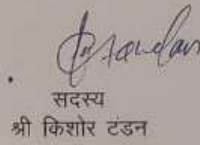 सदस्य
श्री किशोर टंडन